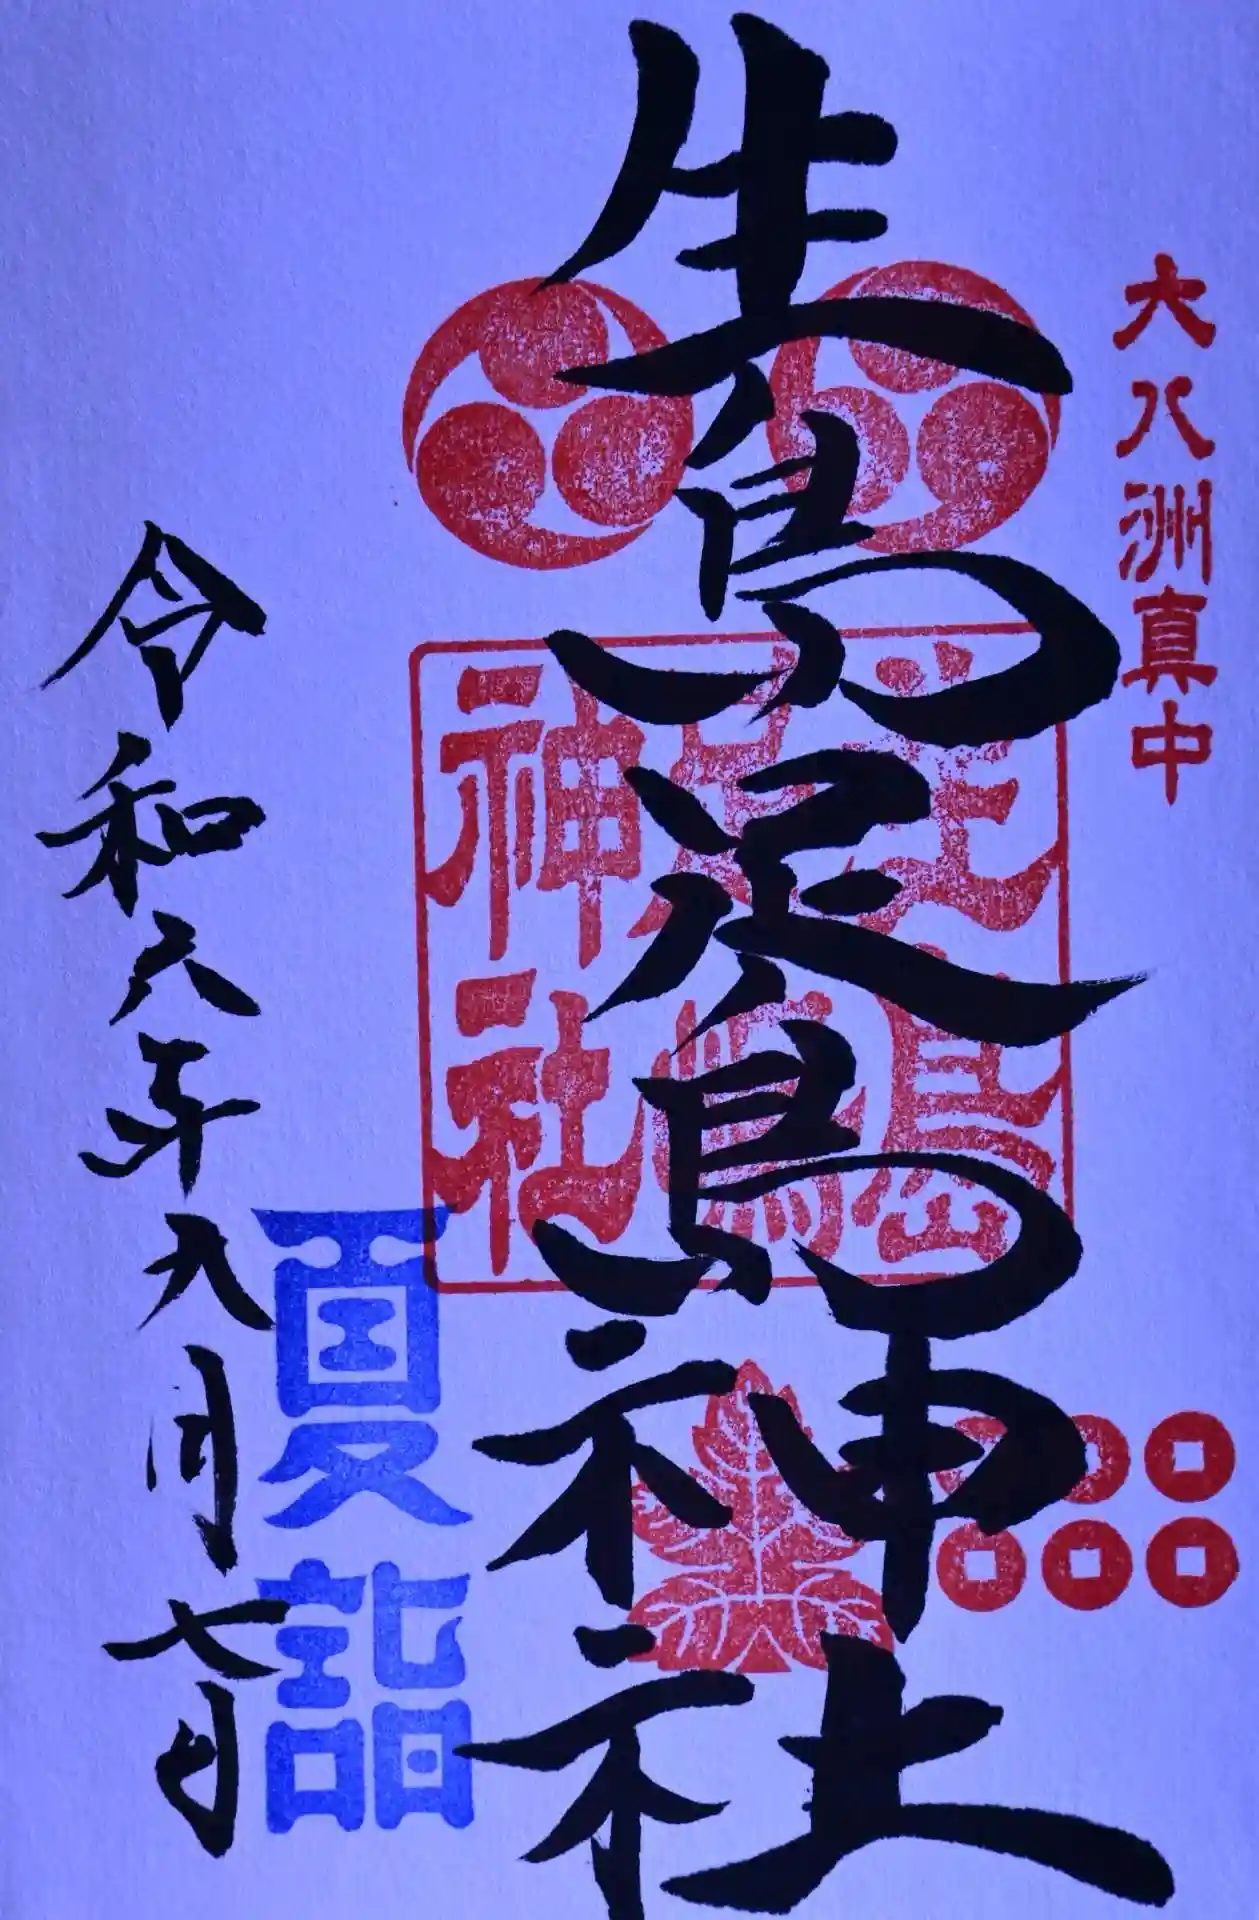 大八洲真中
生島足島神社
生島足島神社
夏詣
令和六年九月七日